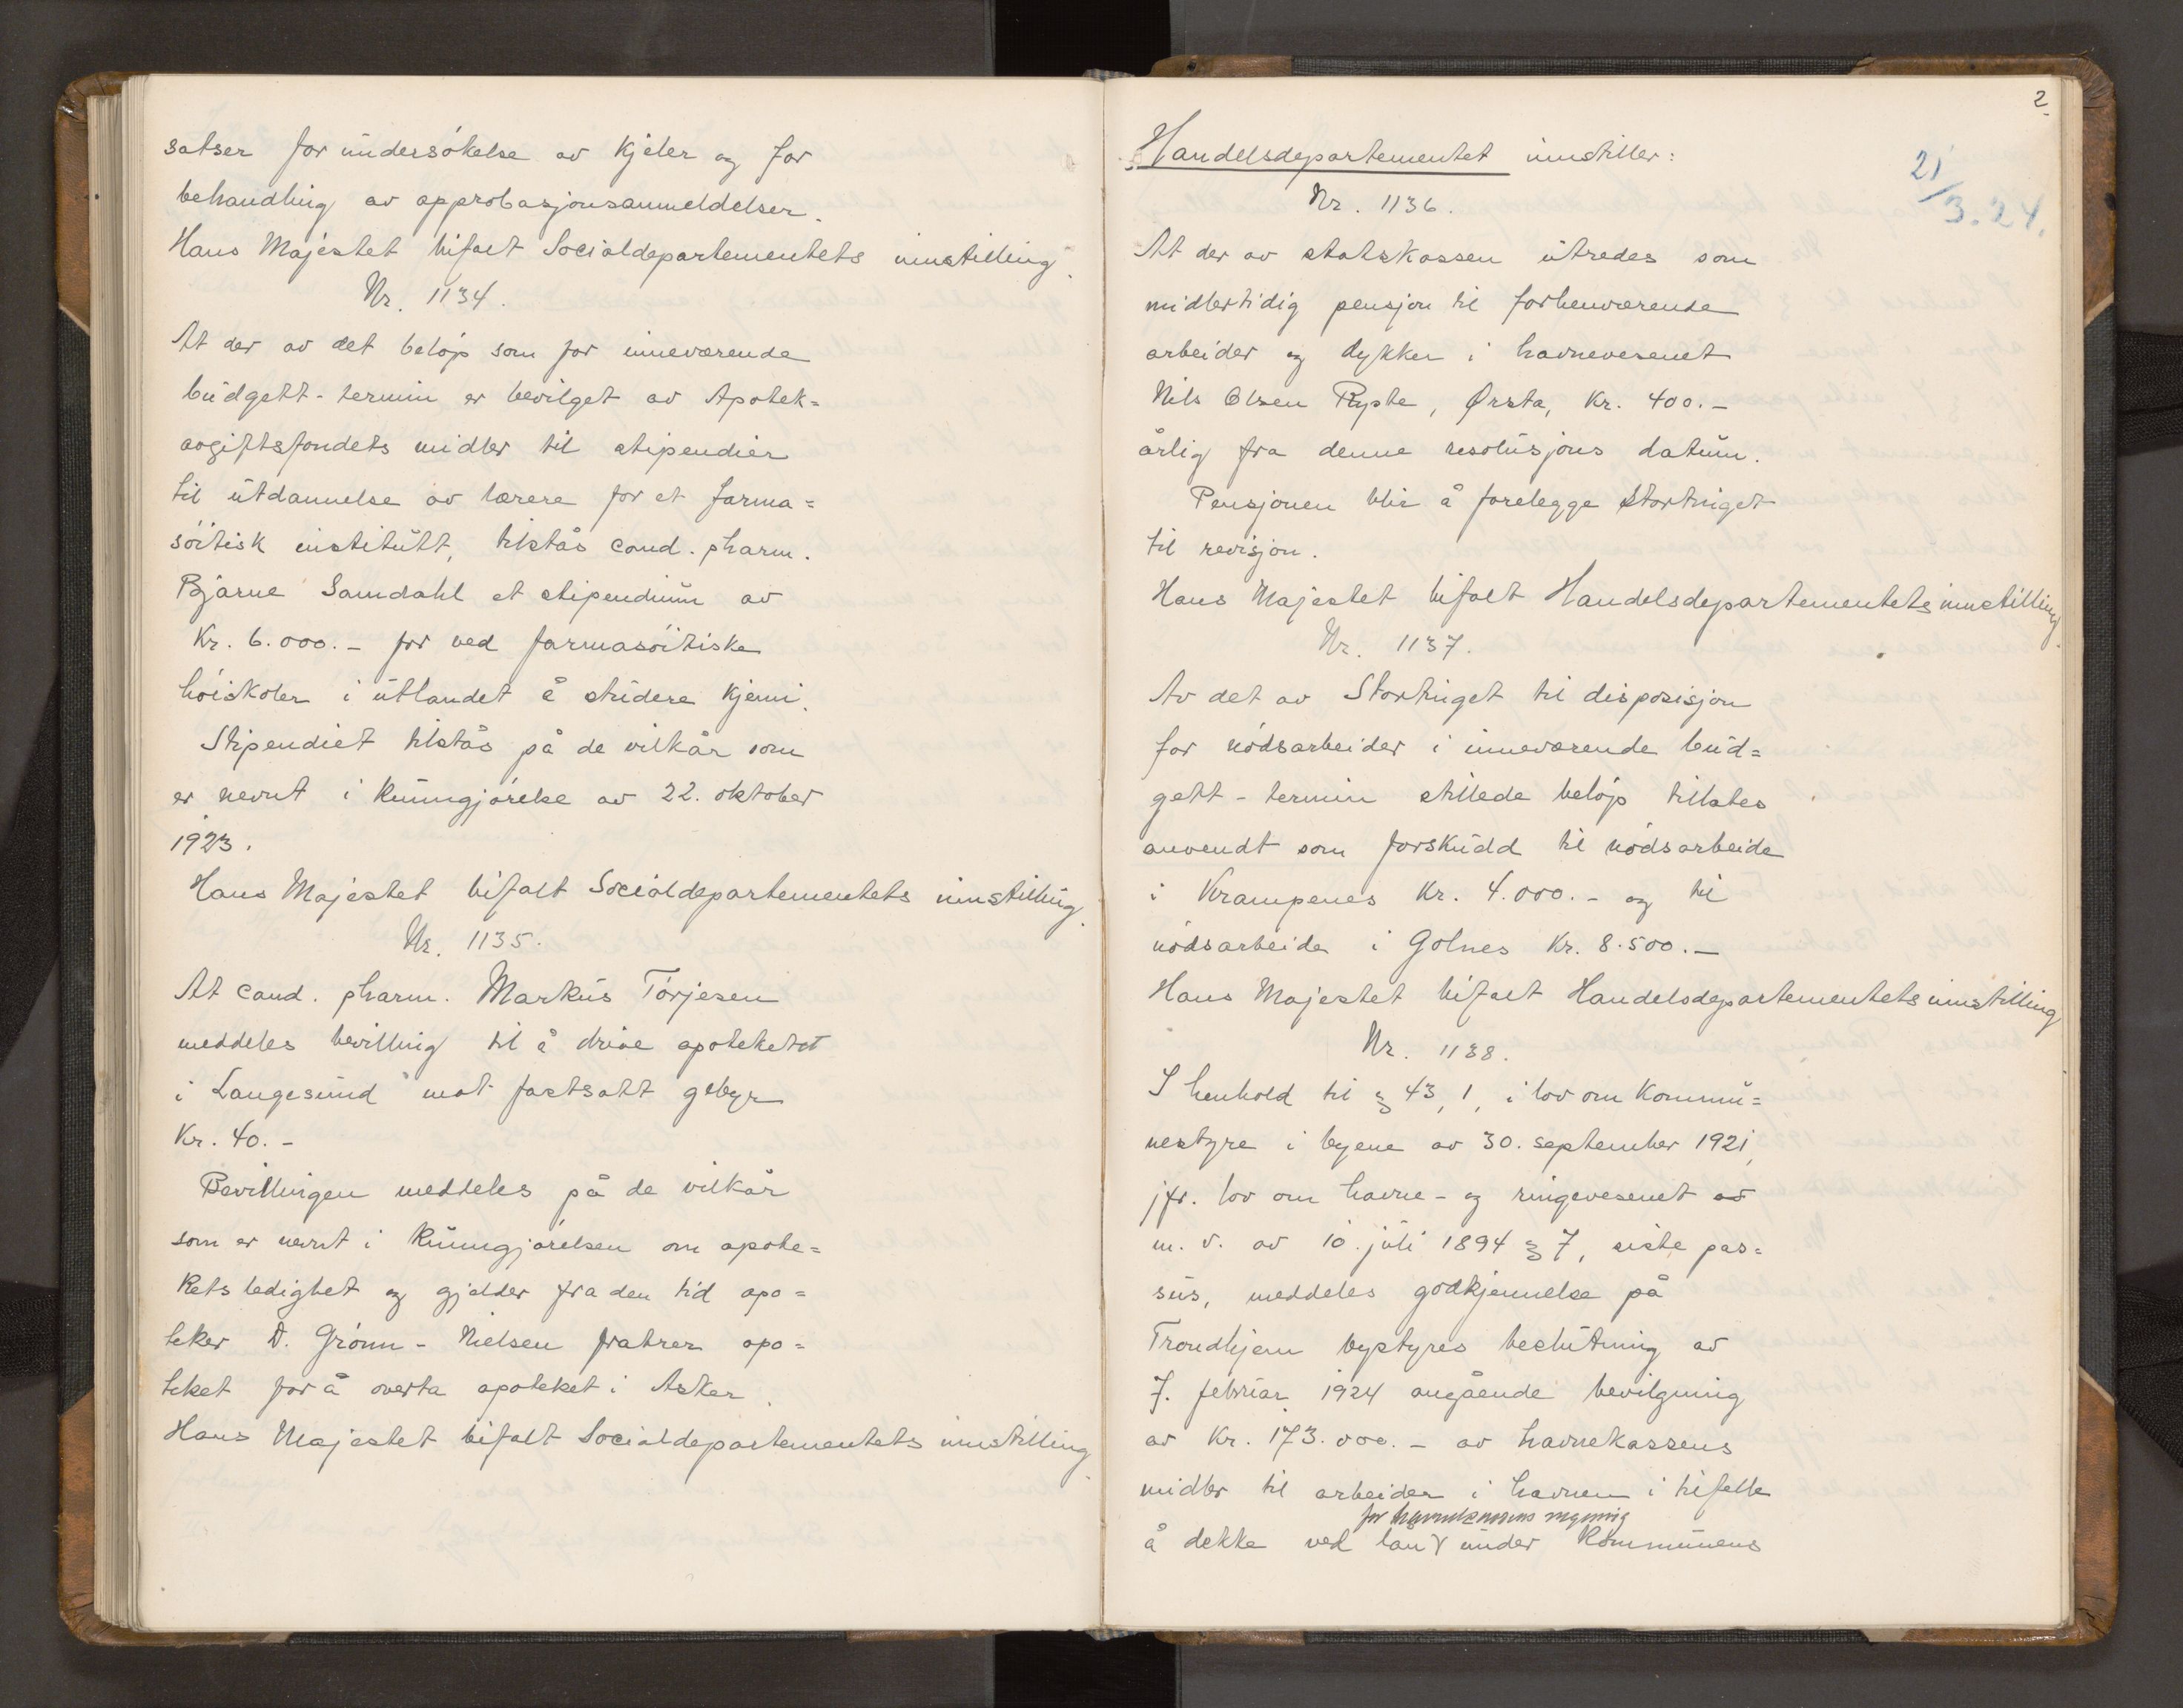 satser for undersøkelse av kjeler og for
behandling av approbasjonsanmeldelser.
Hans Majestet bifalt Socialdepartementets innstilling.
Nr. 1134.
At der av det beløp som for inneværende
budgett-termin er bevilget av Apotek=
avgiftsfondets midler til stipendier
til utdannelse av lærere for et farma=
søitisk institutt, tilstås cand. pharm.
Bjarne Samdahl et stipendium av
Kr. 6.000.- for ved farmasøitiske
høiskoler i utlandet å studere kjemi.
Stipendiet tilstås på de vilkår som
er nevnt i kunngjørelse av 22. oktober
1923.
Hans Majestet bifalt Socialdepartementets innstilling.
Nr. 1135.
At cand. pharm. Markus Torjesen
meddeles bevilling til å drive apoteket
i Langesund mot fastsatt gebyr
Kr. 40.-
Bevillingen meddeles på de vilkår
som er nevnt i kunngjørelsen om apote=
kets ledighet og gjelder fra den tid apo=
teker D. Grønn-Nielsen fratrer apo=
teket for å overta apoteket i Asker.
Hans Majestet bifalt Socialdepartementets innstilling.
2
21/3.24.
Handelsdepartementet innstiller:
Nr. 1136.
At der av statskassen utredes som
midlertidig pensjon til forhenværende
arbeider og dykker i havnevesenet
Nils Olsen Rypte, Ørsta, Kr. 400.-
årlig fra denne resolusjons datum.
Pensjonen blir å forelegge Stortinget
til revisjon.
Hans Majestet bifalt Handelsdepartementets innstilling.
Nr. 1137.
Av det av Stortinget til disposisjon
for nødsarbeider i inneværende bud=
gett-termin stillede beløp tillates
anvendt som forskudd til nødsarbeide
i Krampenes Kr. 4.000.- og til
nødsarbeide i Golnes Kr. 8.500.-
Hans Majestet bifalt Handelsdepartementets innstilling
Nr. 1138.
I henhold til § 43, 1, i lov om kommu=
nestyre i byene av 30. september 1921,
jfr. lov om havne- og ringevesenet
m. v. av 10. juli 1894 § 7, siste pas=
sus, meddeles godkjennelse på
Trondhjem bystyres beslutning av
7. februar 1924 angående bevilgning
av Kr. 173.000.- av havnekassens
midler til arbeider i havnen i tilfelle
for havnekassens regning
å dekke ved lån under kommunens